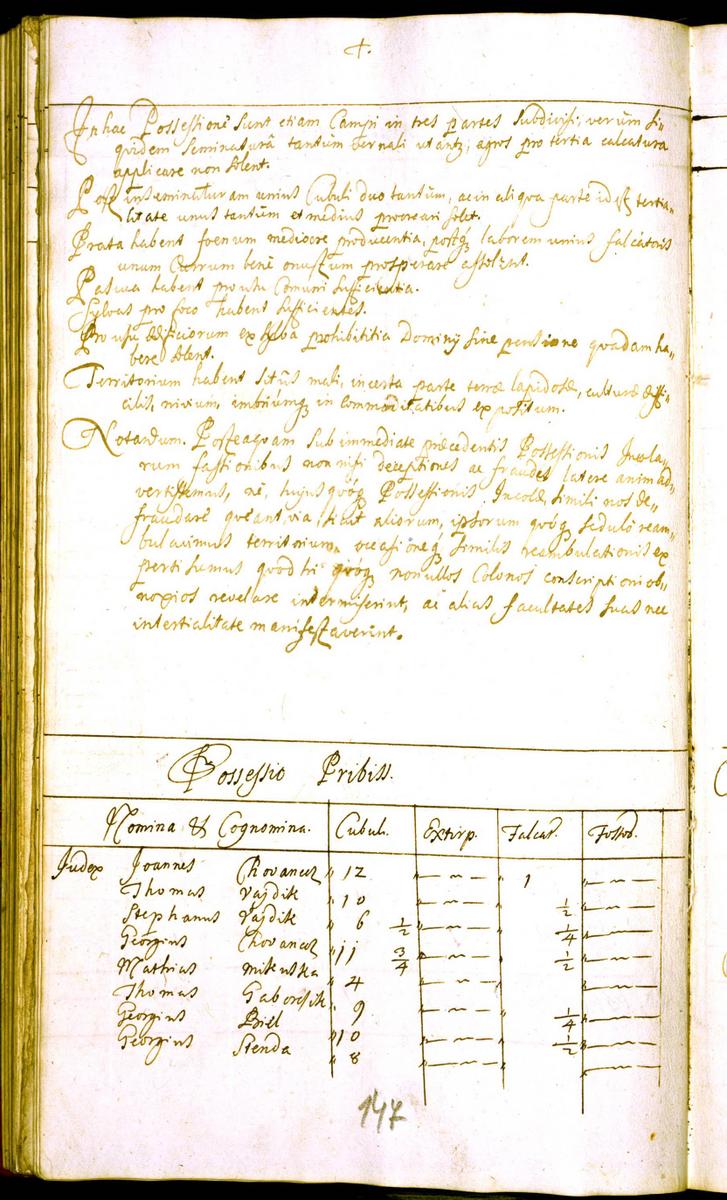 In hac Possessione sunt etiam Campi in tres partes subdivisi, verùm si„
quidem seminaturâ tantùm vernali utantr, agros pro tertia calcatura
applicare non solent.
Post inseminaturam unius Cubuli duo tantùm, ac in aliqua parte id est tertia„
litate unus tantùm et medius procreari solet.
Prata habent foenum mediocre producentia, postq́ laborem unius falcatoris
unum Currum benè onustum prosperare assolent.
Pascua habent pro usu Comuni sufficientia.
Sylvas pro foco habent sufficientes.
Pro usu ædificiorum ex sylva prohibititia Dominij sine pensione quadam ha„
bere solent.
Territorium habent sitûs mali, in certa parte terræ lapidosæ, culturæ diffi„
cilis, nivium, imbriumq́ incommoditatibus expositum.
Notandum. Posteaquam sub immediate præcedentis Possessionis Incola„
rum fassionibus non nisi deceptiones ac fraudes latere animad„
vertissemus, nè, hujus quoq́ Possessionis Incolæ simili nos de„
fraudare queant via, sicut aliorum, ipsorum quoq́ sedulò ream„
bulavimus territorium, occasioneq́ similis reambulationis ex„
perti sumus quòd hi quoq́ nonullos Colonos conscriptioni ob„
noxios revelare intermiserint, ac alias facultates suas nec
in tertialitate manifestaverint.
Possessio Pribiss.
Nomina & Cognomina. Cubul. Extirp. Falcat. Fossor.
Judex Joannes Chovancz „ 12 „ — ~ — „ 1 „ — ~ —
Thomas Vajdik „ 10 „ — ~ — „ 1/2 „ — ~ —
Stephanus Vajdik „ 6 1/2 „ — ~ — „ 1/4 „ — ~ —
Georgius Chovancz „ 11 3/4 „ — ~ — „ 1/2 „ — ~ —
Mathias Mikuska „ 4 „ — ~ — „ „ — ~ —
Thomas „ 9 „ — ~ — „ 1/4 „ — ~ —
Georgius Biel „ 10 „ — ~ — „ 1/2 „ — ~ —
Georgius Stenda „ 8 „ — ~ — „ „ — ~ —
147